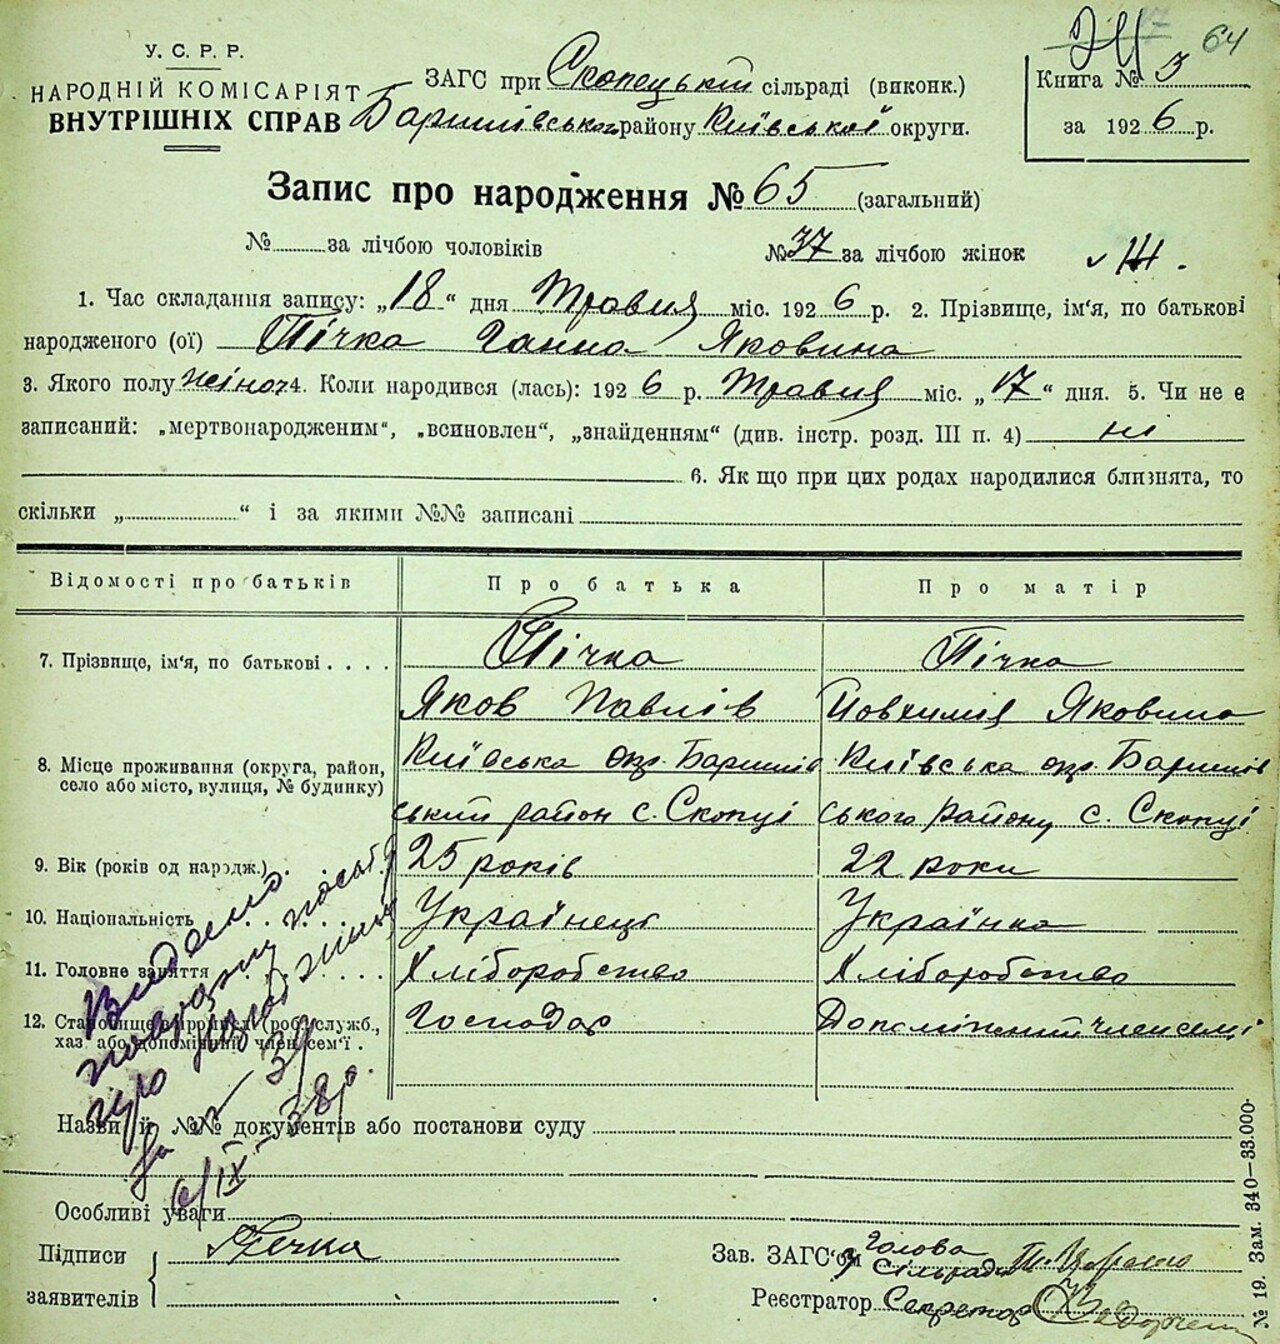 64
У. С. Р. Р.
НАРОДНІЙ КОМІСАРІЯТ
ВНУТРІШНІХ СПРАВ
ЗАГС при Скопецькій сільраді (виконк.)
Баришівського району Київської округи.
Книга № 3
за 1926 р.
Запис про народження № 65 (загальний)
№ за лічбою чоловіків № 37 за лічбою жінок
1. Час складання запису: „18“ дня Травня міс. 1926 р. 2. Прізвище, ім'я, по батькові
народженого (ої) Пічка Ганна Яковина
3. Якого полу жіноч 4. Коли народився (лась): 1926 р. Травня міс. „17“ дня. 5. Чи не є
записаний: „мертвонародженим“, „всиновлен“, „знайденням“ (див. інстр. розд. III п. 4) ні
6. Як що при цих родах народилися близнята, то
скільки „ “ і за якими №№ записані
Відомості про батьків Про батька Про матір
7. Прізвище, ім'я, по батькові . . . . Пічка Пічка
Яков Павлів Йовхимія Яковина
8. Місце проживання (округа, район, Київська окр. Баришів Київська окр. Баришів
село або місто, вулиця, № будинку)
ський район с. Скопці ського району с. Скопці
9. Вік (років од нарэдж.) . 25 років 22 роки
10. Національність Українець Українка
11. Головне заняття Хліборобство Хліборобство
12. Становище в промислі (роб., служб., Господар Допоміжний член семї
хаз. або допоміжний член сем'ї .
Видано
повторну
про народження
за № 39
6/IX-38р.
Назви й №№ документів або постанови суду
Особливі уваги
Підписи Печка
заявителів
Зав. ЗАГС'ом Голова
Сільради
Реєстратор Секретар
№ 19. Зам. 340—33.000·